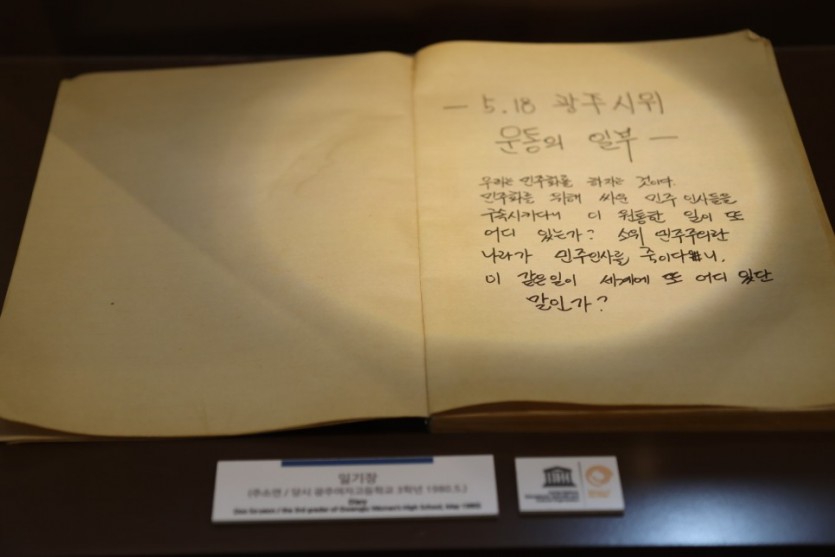 — 5.18 광주시위
운동의 일부 —
우리는 민주화를 하자는 것이다.
민주화를 위해 싸운 민주 인사들을
구속시키다니 이 원통한 일이 또
어디 있는가? 소위 민주주의란
나라가 민주인사를 죽이다니.
이 같은일이 세계에 또 어디 있단
말인가?
일기장
(주소연 / 당시 광주여자고등학교 3학년 1980.5.)
Diary
/ the 3rd grader of Gwangju Women's High School, May 1980)